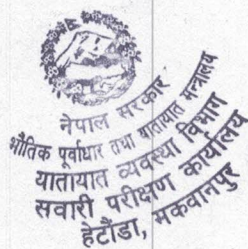 नेपाल सरकार
भौतिक पूर्वाधार तथा यातायात मन्त्रालय
यातायात व्यवस्था विभाग
सवारी परीक्षण कार्यालय
हेटौंडा, मकवानपुर